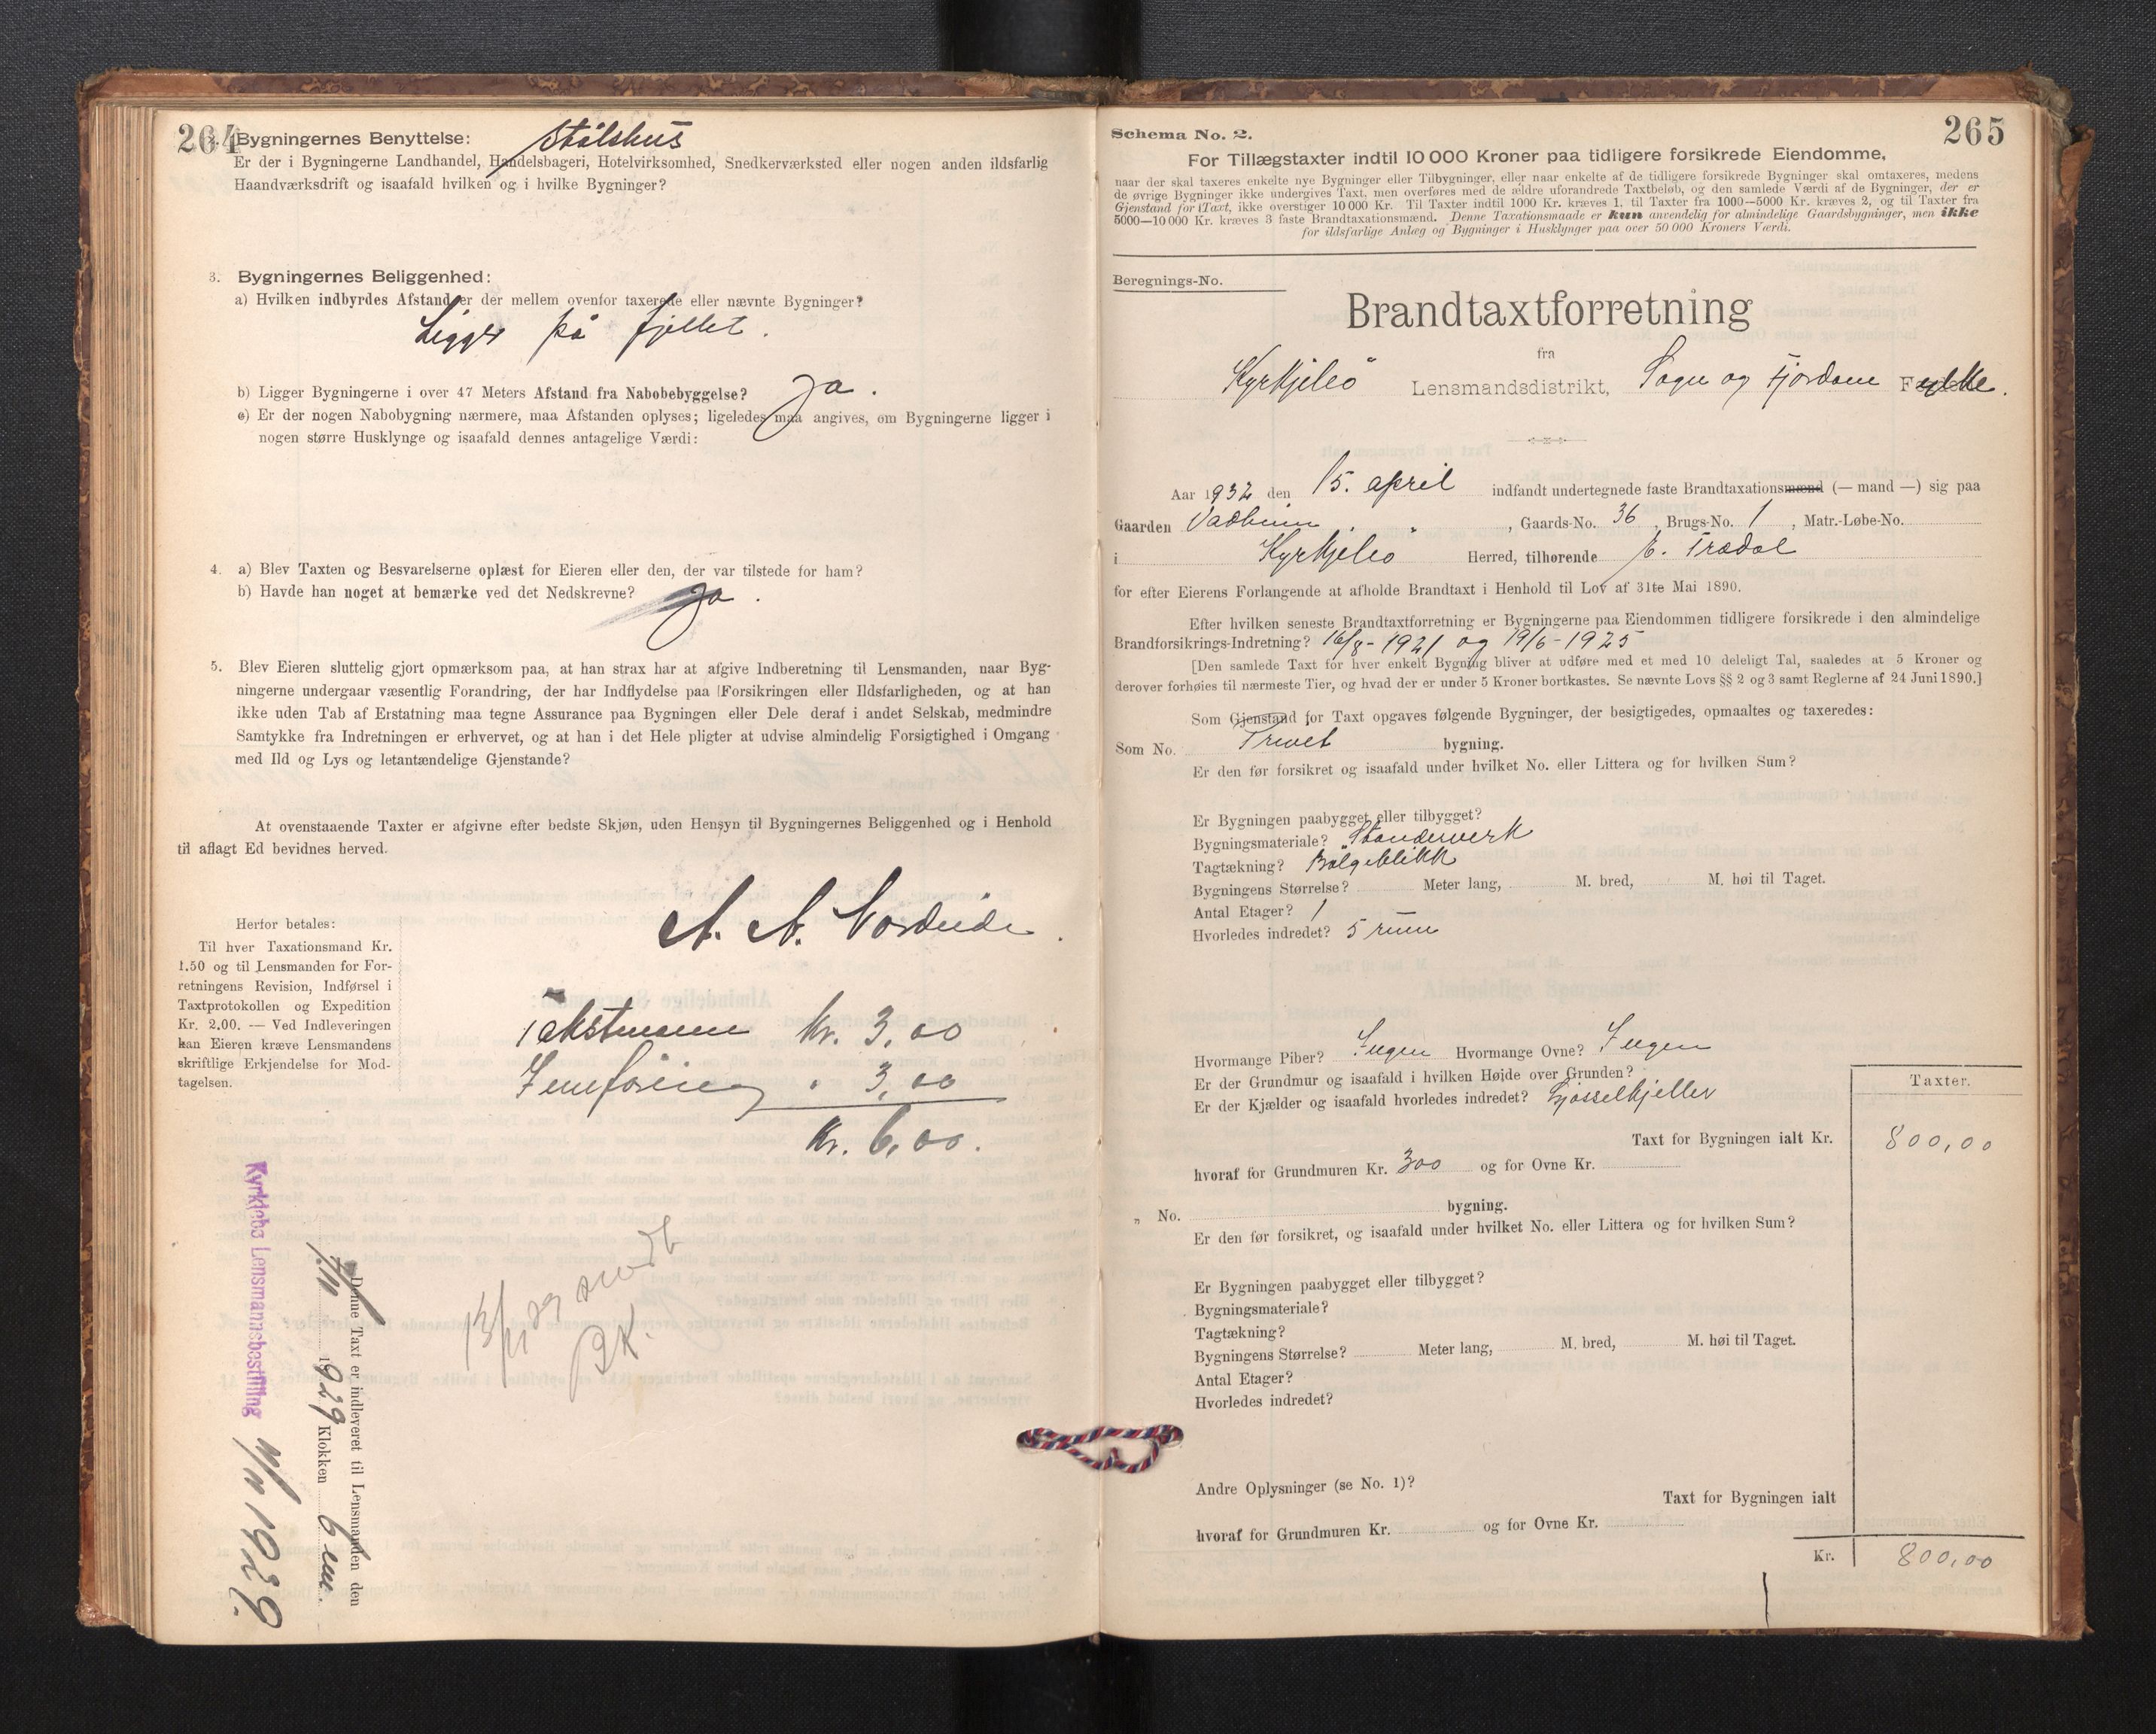 264
Bygningernes Benyttelse: Stølshus
Er der i Bygningerne Landhandel, Handelsbageri, Hotelvirksomhed, Snedkerværksted eller nogen anden ildsfarlig
Haandværksdrift og isaafald hvilken og i hvilke Bygninger?
3. Bygningernes Beliggenhed:
a) Hvilken indbyrdes Afstand er der mellem ovenfor taxerede eller nævnte Bygninger?
Ligger på fjellet.
b) Ligger Bygningerne i over 47 Meters Afstand fra Nabobebyggelse? Ja.
c) Er der nogen Nabobygning nærmere, maa Afstanden oplyses; ligeledes maa angives, om Bygningerne ligger i
nogen større Husklynge og isaafald dennes antagelige Værdi:
4. a) Blev Taxten og Besvarelserne oplæst for Eieren eller den, der var tilstede for ham?
b) Havde han noget at bemærke ved det Nedskrevne? Ja.
5. Blev Eieren sluttelig gjort opmærksom paa, at han strax har at afgive Indberetning til Lensmanden, naar Byg-
ningerne undergaar væsentlig Forandring, der har Indflydelse paa Forsikringen eller Ildsfarligheden, og at han
ikke uden Tab af Erstatning maa tegne Assurance paa Bygningen eller Dele deraf i andet Selskab, medmindre
Samtykke fra Indretningen er erhvervet, og at han i det Hele pligter at udvise almindelig Forsigtighed i Omgang
med Ild og Lys og letantændelige Gjenstande?
At ovenstaaende Taxter er afgivne efter bedste Skjøn, uden Hensyn til Bygningernes Beliggenhed og i Henhold
til aflagt Ed bevidnes herved.
A. A. Nordeide.
Herfor betales:
Til hver Taxationsmand Kr.
1.50 og til Lensmanden for For-
retningens Revision, Indførsel i
Taxtprotokollen og Expedition
Kr. 2.00. — Ved Indleveringen
kan Eieren kræve Lensmandens
skriftlige Erkjendelse for Mod-
tagelsen.
Takstmann Kr. 3,00
Innføring " 3,00
Kr. 6,00.
13/11 29 sendt
Denne Taxt er indleveret til Lensmanden den
11/11 1929 Klokken 6 em.
Kyrkjebø Lensmannsbestilling 11/11 1929.
265
Schema No. 2.
For Tillægstaxter indtil 10 000 Kroner paa tidligere forsikrede Eiendomme,
naar der skal taxeres enkelte nye Bygninger eller Tilbygninger, eller naar enkelte af de tidligere forsikrede Bygninger skal omtaxeres, medens
de øvrige Bygninger ikke undergives Taxt, men overføres med de ældre uforandrede Taxtbeløb, og den samlede Værdi af de Bygninger, der er
Gjenstand for Taxt, ikke overstiger 10 000 Kr. Til Taxter indtil 1000 Kr. kræves 1, til Taxter fra 1000—5000 Kr. kræves 2, og til Taxter fra
5000—10 000 Kr. kræves 3 faste Brandtaxationsmænd. Denne Taxationsmaade er kun anvendelig for almindelige Gaardsbygninger, men ikke
for ildsfarlige Anlæg og Bygninger i Husklynger paa over 50 000 Kroners Værdi.
Beregnings-No.
Brandtaxtforretning
fra
Kyrkjebø Lensmandsdistrikt, Sogn og Fjordane Fylke.
Aar 1932 den 15. april indfandt undertegnede faste Brandtaxationsmænd (— mand —) sig paa
Gaarden Vadheim, Gaards-No. 36, Brugs-No. 1, Matr.-Løbe-No.
i Kyrkjebø Herred, tilhørende E. Trædal
for efter Eierens Forlangende at afholde Brandtaxt i Henhold til Lov af 31te Mai 1890.
Efter hvilken seneste Brandtaxtforretning er Bygningerne paa Eiendommen tidligere forsikrede i den almindelige
Brandforsikrings-Indretning? 16/8-1921 og 19/6-1925
[Den samlede Taxt for hver enkelt Bygning bliver at udføre med et med 10 deleligt Tal, saaledes at 5 Kroner og
derover forhøies til nærmeste Tier, og hvad der er under 5 Kroner bortkastes. Se nævnte Lovs §§ 2 og 3 samt Reglerne af 24 Juni 1890.]
Som Gjenstand for Taxt opgaves følgende Bygninger, der besigtigedes, opmaaltes og taxeredes:
Som No. Privet bygning.
Er den før forsikret og isaafald under hvilket No. eller Littera og for hvilken Sum?
Er Bygningen paabygget eller tilbygget?
Bygningsmateriale? Standerverk
Tagtækning? Bølgeblikk
Bygningens Størrelse? Meter lang, M. bred, M. høi til Taget.
Antal Etager? 1
Hvorledes indredet? 5 rum
Hvormange Piber? Ingen Hvormange Ovne? Ingen
Er der Grundmur og isaafald i hvilken Højde over Grunden?
Er der Kjælder og isaafald hvorledes indredet? Gjøsselkjeller
Taxter.
Taxt for Bygningen ialt Kr. 800,00
hvoraf for Grundmuren Kr. 300 og for Ovne Kr.
„ No. bygning.
Er den før forsikret, og isaafald under hvilket No. eller Littera og for hvilken Sum?
Er Bygningen paabygget eller tilbygget?
Bygningsmateriale?
Tagtækning?
Bygningens Størrelse? Meter lang, M. bred, M. høi til Taget.
Antal Etager?
Hvorledes indredet?
Andre Oplysninger (se No. 1)?
Taxt for Bygningen ialt
hvoraf for Grundmuren Kr. og for Ovne Kr.
Kr. 800,00